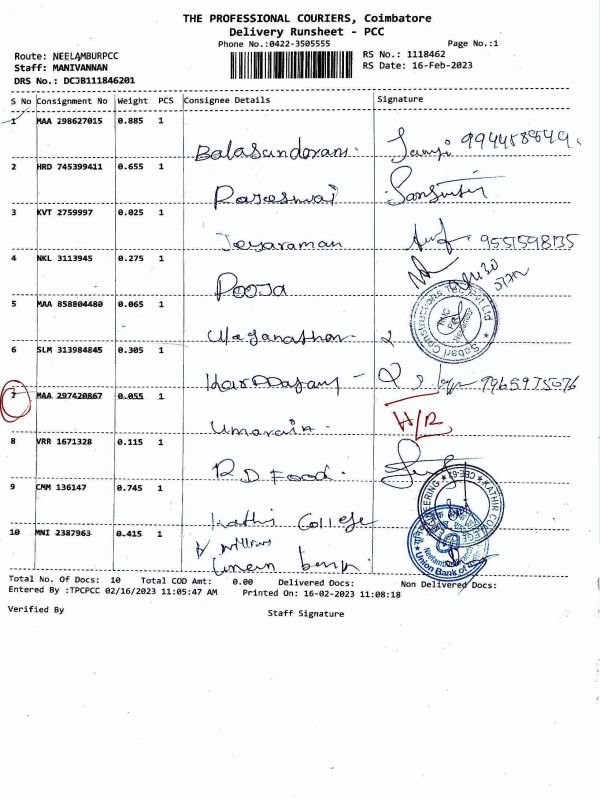 THE PROFESSIONAL COURIERS, Coimbatore
Delivery Runsheet - PCC
Phone No.:0422-3505555 Page No.:1
Route: NEELAMBURPCC RS No.: 1118462
Staff: MANIVANNAN RS Date: 16-Feb-2023
DRS No.: DCJB111846201
S No Consignment No Weight PCS Consignee Details Signature
1 MAA 298627015 0.885 1
Balasundaram.
2 HRD 745399411 0.655 1
3 KVT 2759997 0.025 1
Jeyaraman 9551598135
4 NKL 3113945 0.275 1
Pooja
5 MAA 858804480 0.065 1
Sabari Constructions
6 SLM 313984845 0.305 1
9965975076
7 MAA 297420867 0.055 1
H/R
8 VRR 1671328 0.115 1
R D Food.
9 CMM 136147 0.745 1
KATHIR COLLEGE ENGINEERING CBE-62
Kathir College
10 MNI 2387963 0.415 1
Union Bank of
Union bank
Total No. Of Docs: 10 Total COD Amt: 0.00 Delivered Docs: Non Delivered Docs:
Entered By :TPCPCC 02/16/2023 11:05:47 AM Printed On: 16-02-2023 11:08:18
Verified By Staff Signature